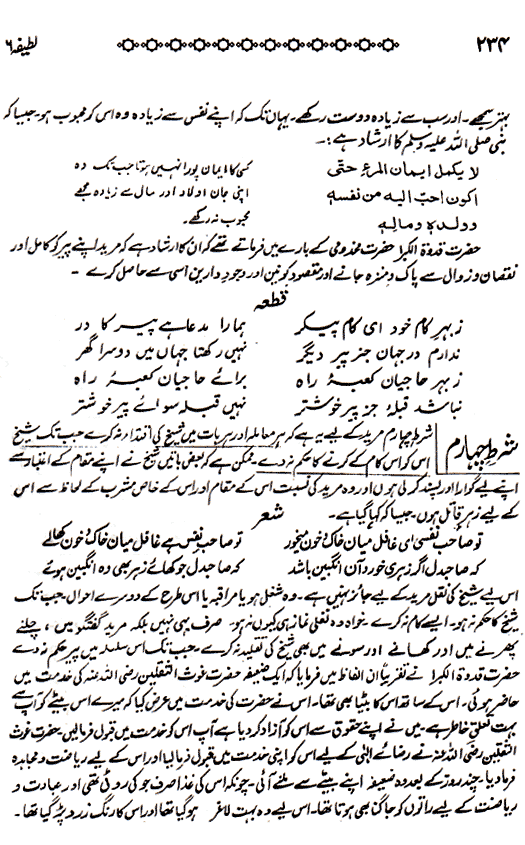 ۲۳۴ لطیفہ ۶
بہتر سمجھے۔ اور سب سے زیادہ دوست رکھے۔ یہاں تک کہ اپنے نفس سے زیادہ وہ اس کو محبوب ہو۔ جیسا کہ
نبی صلی اللہ علیہ وسلم کا ارشاد ہے:۔
لا یکمل ایمان المرء حتّی کسی کا ایمان پورا نہیں ہوتا جب تک وہ
اکون احبّ الیہ من نفسہٖ اپنی جان اولاد اور مال سے زیادہ مجھے
و ولدہٖ و مالہٖ محبوب نہ رکھے۔
حضرت قدوۃ الکبرا حضرت مخدومی کے بارے میں فرماتے تھے کہ ان کا ارشاد ہے کہ مرید اپنے پیر کو کامل اور
نقصان و زوال سے پاک و منزہ جانے اور مقصود کونین اور وجودِ دارین اسی سے حاصل کرے۔
قطعہ
زبہر کام خود ای کام پیکر ہمارا مدعا ہے پیر کا در
ندارم در جہان جز پیر دیگر نہیں رکھتا جہاں میں دوسرا گھر
زبہر حاجیان کعبۂ راہ برائے حاجیان کعبۂ راہ
نباشد قبلۂ جز پیر خوشتر نہیں قبلہ سوائے پیر خوشتر
شرطِ چہارم شرط چہارم مرید کے لیے یہ ہے کہ ہر معاملہ اور ہر بات میں شیخ کی اقتدا نہ کرے جب تک شیخ
اس کو اس کام کے کرنے کا حکم نہ دے۔ ممکن ہے کہ بعض باتیں شیخ نے اپنے مقام کے اعتبار سے
اپنے لیے گوارا اور پسند کر لی ہوں اور وہ مرید کی نسبت اس کے مقام اور اس کے خاص مشرب کے لحاظ سے اس
کے لیے زہر قاتل ہوں۔ جیسا کہ کہا گیا ہے۔
شعر
تو صاحب نفسی ای غافل میان خاک و خون میخور تو صاحب نفس ہے غافل میان خاک و خون کھالے
کہ صاحبدل اگر زہری خورد آن انگبین باشد کہ صاحبدل جو کھائے زہر بھی وہ انگبین ہوئے
اس لیے شیخ کی نقل مرید کے لیے جائز نہیں ہے۔ وہ شغل ہو یا مراقبہ یا اس طرح کے دوسرے احوال۔ جب تک
شیخ کا حکم نہ ہو۔ ایسے کام نہ کرے۔ خواہ وہ نفلی نماز ہی کیوں نہ ہو۔ صرف یہی نہیں بلکہ مرید گفتگو میں، چلنے
پھرنے میں اور کھانے اور سونے میں بھی شیخ کی تقلید نہ کرے۔ جب تک اس سلسلہ میں پیر حکم نہ دے
حضرت قدوۃ الکبرا نے تقریباً ان الفاظ میں فرمایا کہ ایک ضعیفہ حضرت غوث الثقلین رضی اللہ عنہ کی خدمت میں
حاضر ہوئی۔ اس کے ساتھ اس کا بیٹا بھی تھا۔ اس نے حضرت کی خدمت میں عرض کیا کہ میرے اس بیٹے کو آپ سے
بہت تعلق خاطر ہے۔ میں نے اپنے حقوق سے اس کو آزاد کر دیا ہے آپ اس کو خدمت میں قبول فرمالیں۔ حضرت غوث
الثقلین رضی اللہ عنہ نے رضائے الٰہی کے لیے اس کو اپنی خدمت میں قبول فرما لیا اور اس کے لیے ریاضت و مجاہدہ
فرما دیا۔ چند روز کے بعد وہ ضعیفہ اپنے بیٹے سے ملنے آئی۔ چونکہ اس کی غذا صرف جو کی روٹی تھی اور عبادت و
ریاضت کے لیے راتوں کو جاگنا بھی ہوتا تھا۔ اس لیے وہ بہت لاغر ہو گیا تھا اور اس کا رنگ زرد پڑ گیا تھا۔